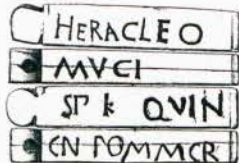 HERACLEO
MVCI
SP K QVIN
CN POMMCR